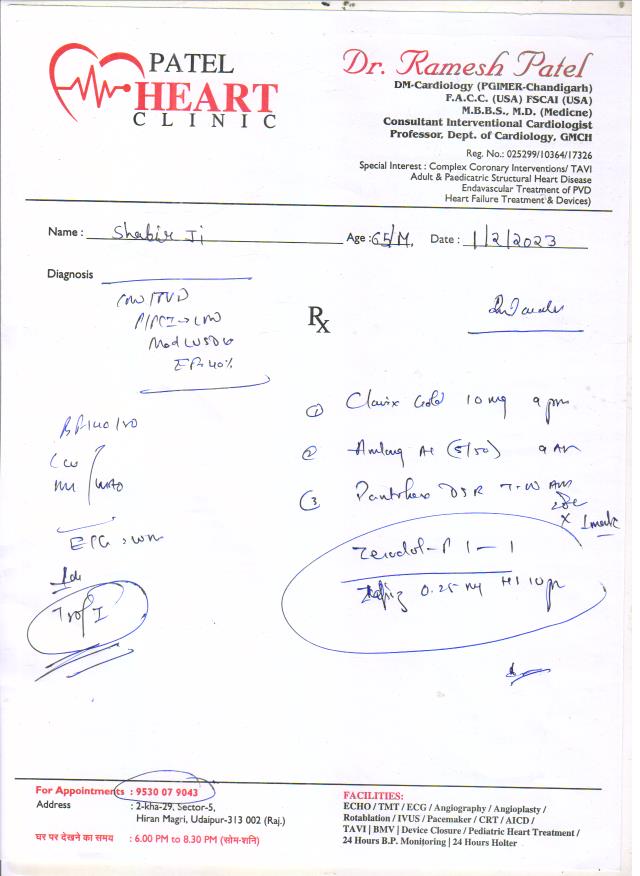 PATEL
HEART
CLINIC
Dr. Ramesh Patel
DM-Cardiology (PGIMER-Chandigarh)
F.A.C.C. (USA) FSCAI (USA)
M.B.B.S., M.D. (Medicne)
Consultant Interventional Cardiologist
Professor, Dept. of Cardiology, GMCH
Reg. No.: 025299/10364/17326
Special Interest : Complex Coronary Interventions/ TAVI
Adult & Paedicatric Structural Heart Disease
Endavascular Treatment of PVD
Heart Failure Treatment & Devices)
Name : Shabir Ji Age : 65/M, Date : 1/2/2023
Diagnosis
EF: 40%
Rx
① 10 mg 9 pm
② (5/50) 9 AM
③ DSR
x 1 week
Zerodol-P 1 — 1
0.25 mg 10 pm
BP 140/
Trop I
For Appointments : 9530 07 9043
Address : 2-kha-29, Sector-5,
Hiran Magri, Udaipur-313 002 (Raj.)
घर पर देखने का समय : 6.00 PM to 8.30 PM (सोम-शनि)
FACILITIES:
ECHO / TMT / ECG / Angiography / Angioplasty /
Rotablation / IVUS / Pacemaker / CRT / AICD /
TAVI | BMV | Device Closure / Pediatric Heart Treatment /
24 Hours B.P. Monitoring | 24 Hours Holter